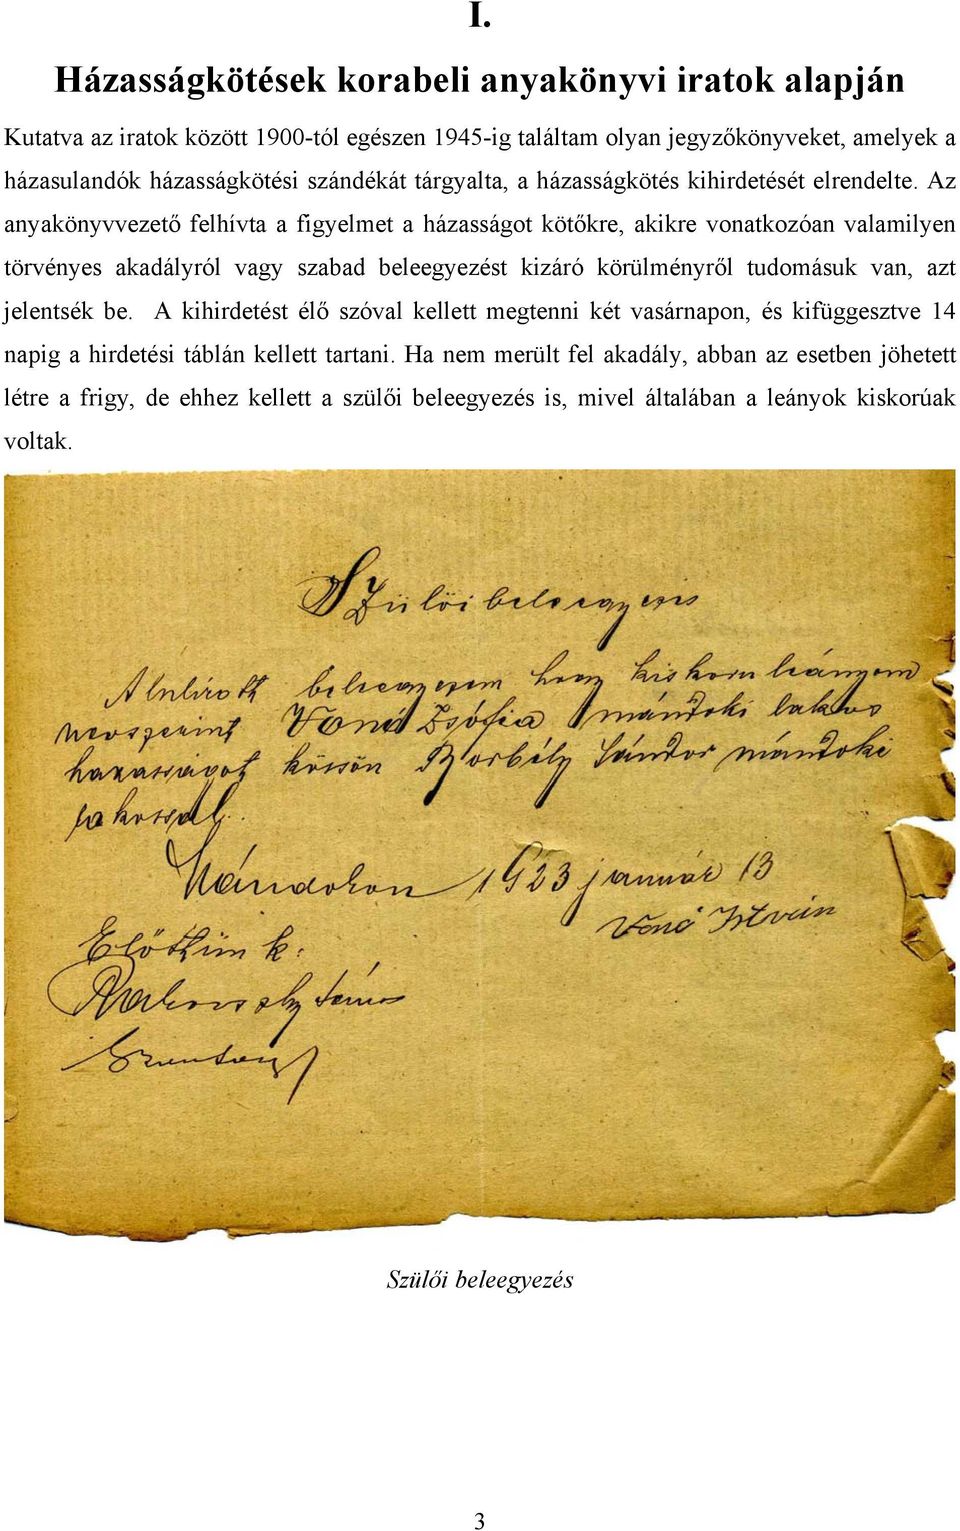 I.
Házasságkötések korabeli anyakönyvi iratok alapján
Kutatva az iratok között 1900-tól egészen 1945-ig találtam olyan jegyzőkönyveket, amelyek a
házasulandók házasságkötési szándékát tárgyalta, a házasságkötés kihirdetését elrendelte. Az
anyakönyvvezető felhívta a figyelmet a házasságot kötőkre, akikre vonatkozóan valamilyen
törvényes akadályról vagy szabad beleegyezést kizáró körülményről tudomásuk van, azt
jelentsék be. A kihirdetést élő szóval kellett megtenni két vasárnapon, és kifüggesztve 14
napig a hirdetési táblán kellett tartani. Ha nem merült fel akadály, abban az esetben jöhetett
létre a frigy, de ehhez kellett a szülői beleegyezés is, mivel általában a leányok kiskorúak
voltak.
Szülöi beleegyezés
Alulirott beleegyezem hogy kiskoru leányom
nevszerint Vonó Zsófia mándoki lakos
hazasságot kössön Borbély Sándor mándoki
lakossal.
Mándokon 1923 január 13
Vonó István
Elöttünk:
Rakovszky János
Szülői beleegyezés
3